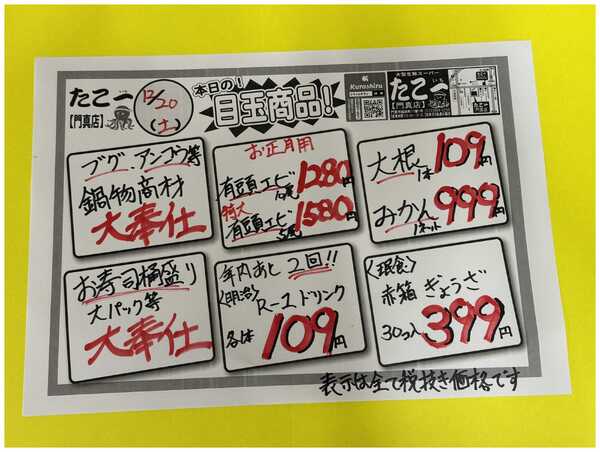 たこ一
【門真店】
12/20
(土)
本日の!
目玉商品!
Kurashiru
大型生鮮スーパー
たこ一
いち
【門真店】
フグ、アンコウ等
鍋物商材
大奉仕
お正月用
有頭エビ 1280円
特大
有頭エビ 1580円
大根 1本 109円
みかん 1ネット 999円
お寿司桶盛り
大パック等
大奉仕
年内あと2回!!
〈明治〉
R-1ドリンク
各1本 109円
〈珉食〉
赤箱 ぎょうざ
30コ入 399円
表示は全て税抜き価格です